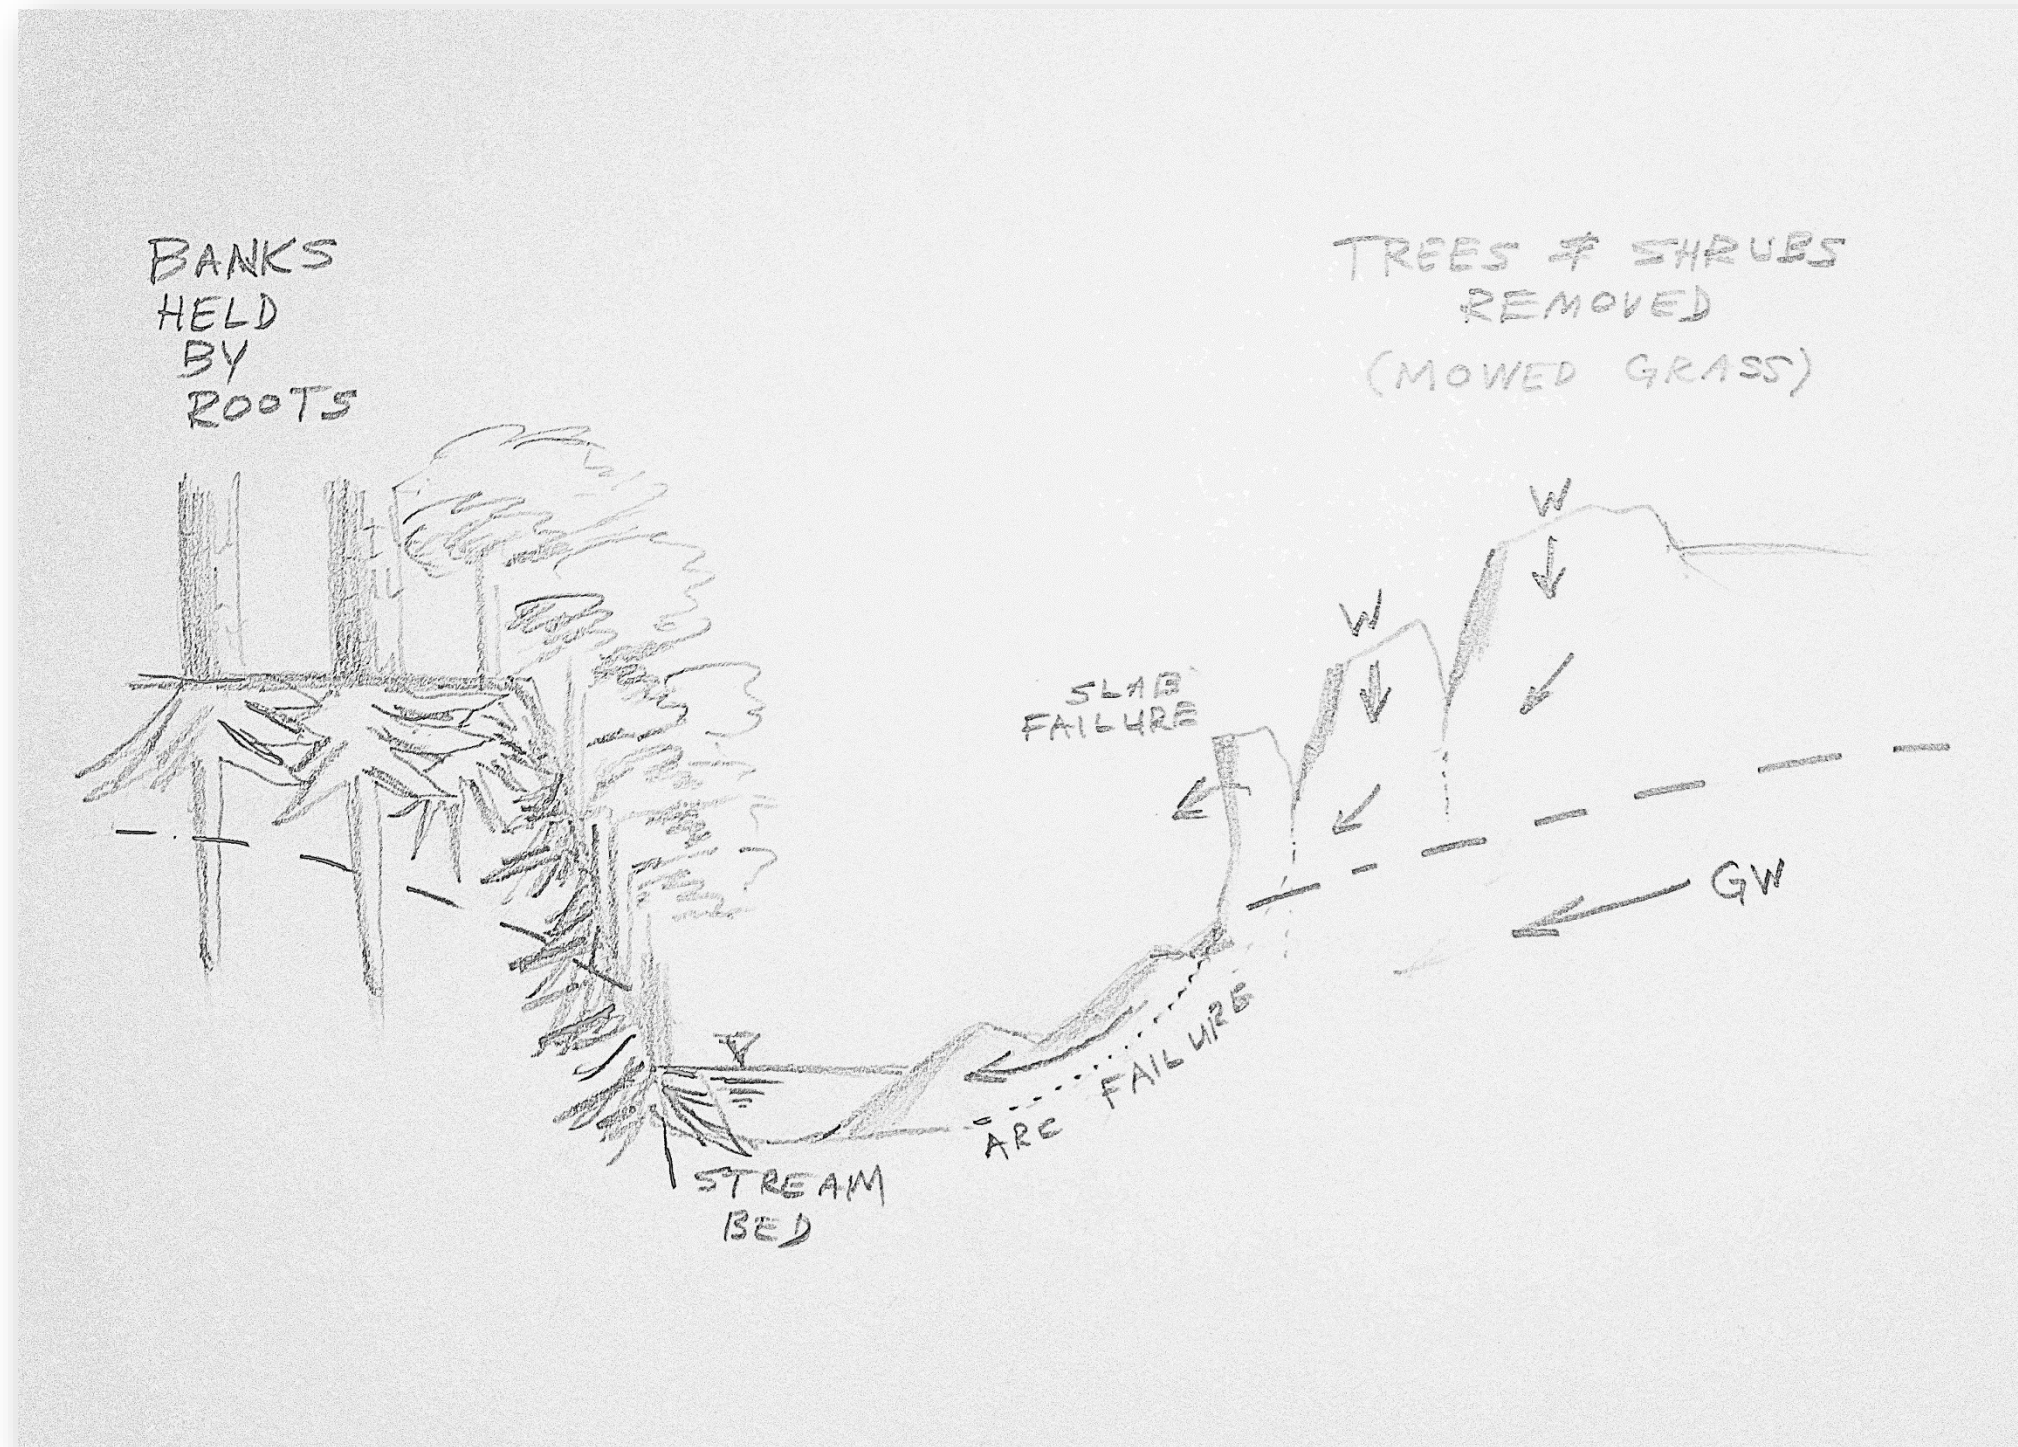 BANKS
HELD
BY
ROOTS
TREES & SHRUBS
REMOVED
(MOWED GRASS)
W
W
SLAB
FAILURE
GW
ARC FAILURE
STREAM
BED